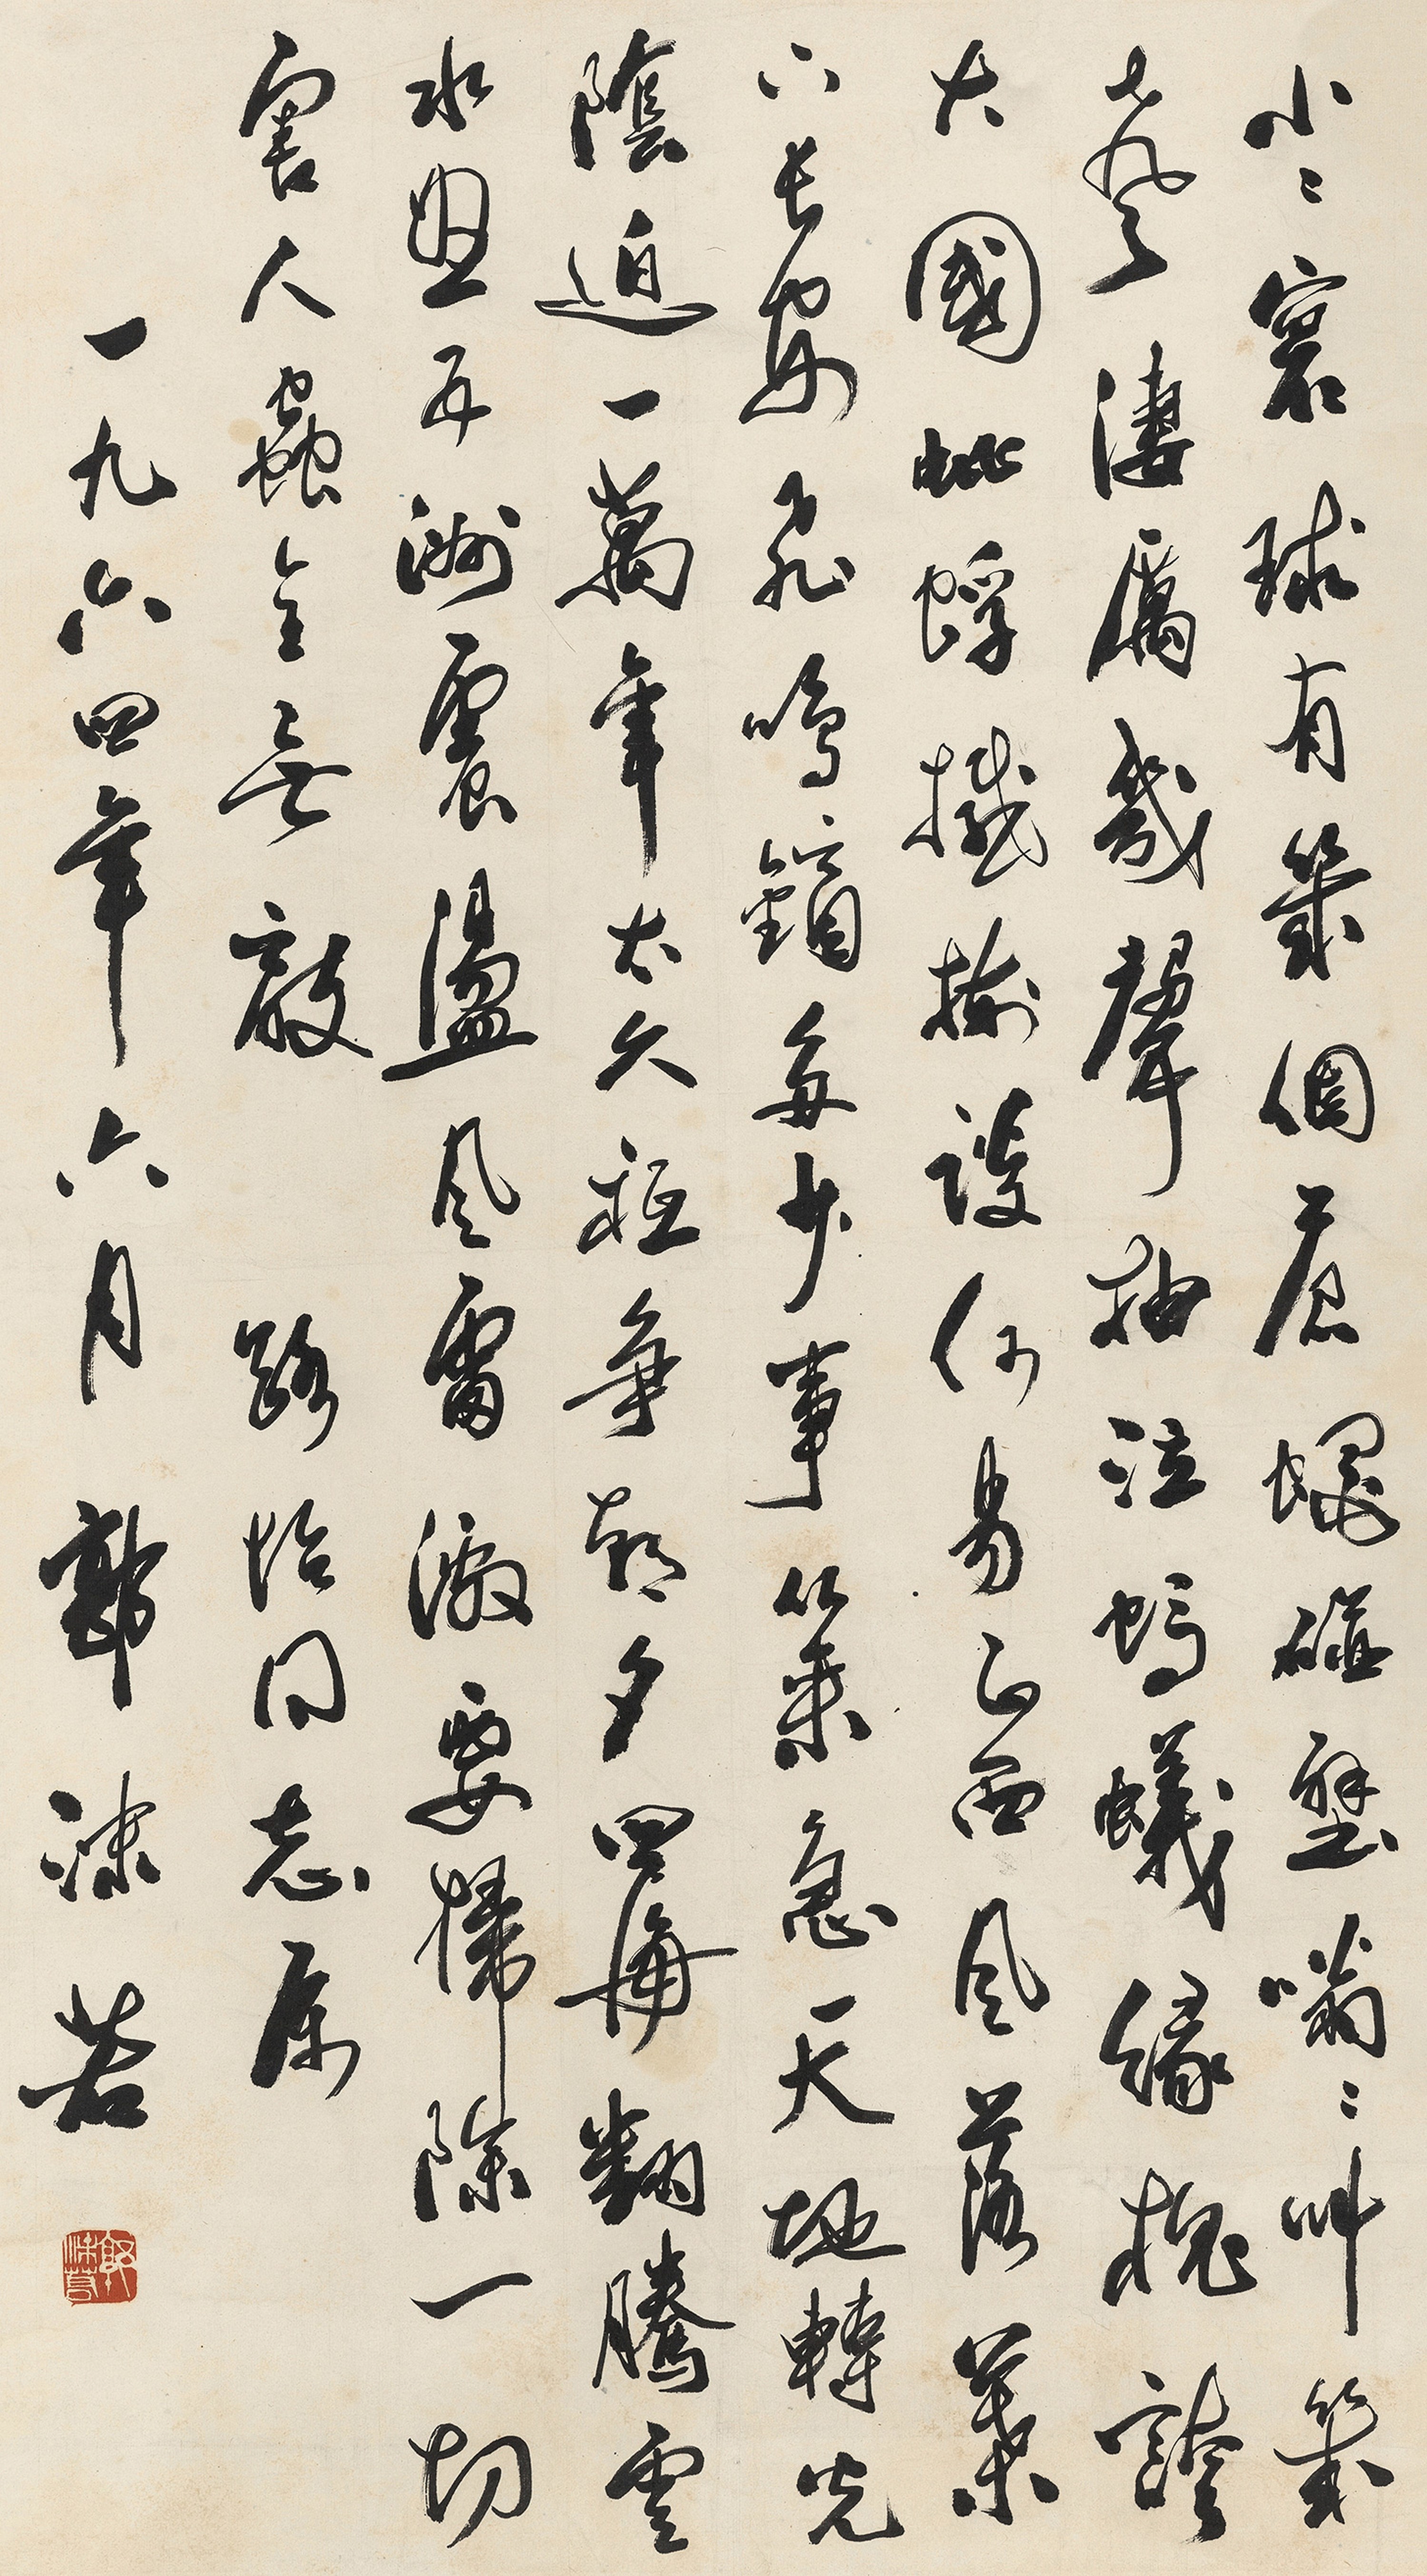 小〻寰球有幾個蒼蠅碰壁嗡〻叫幾
聲淒厲幾聲抽泣螞蟻緣槐誇
大國蚍蜉撼樹談何易正西風落葉
下長安飛鳴鏑多少事從來急天地轉光
陰迫一萬年太久祗爭朝夕四海翻騰雲
水怒五洲震盪風雷激要掃除一切
害人蟲全無敵 路怡同志属
一九六四年六月 郭沫若
郭沫若